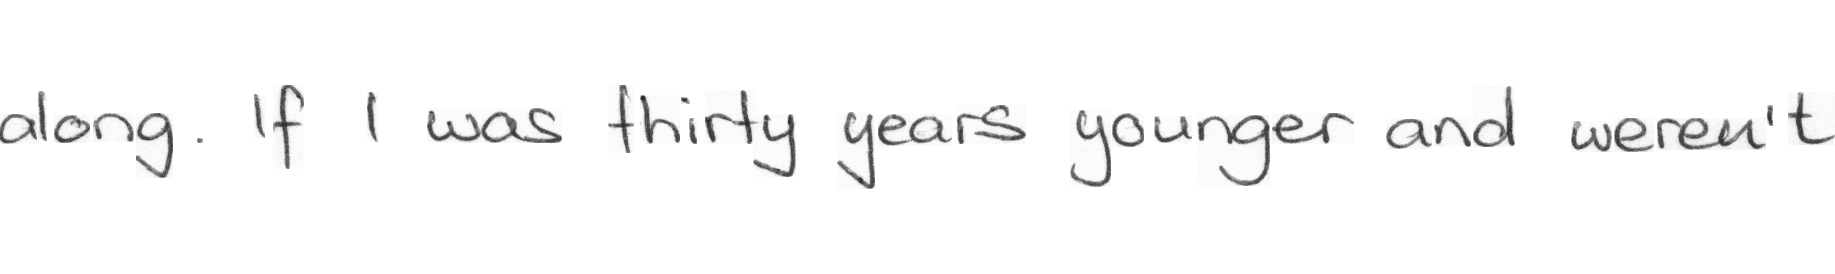 along. If I was thirty years younger and weren't